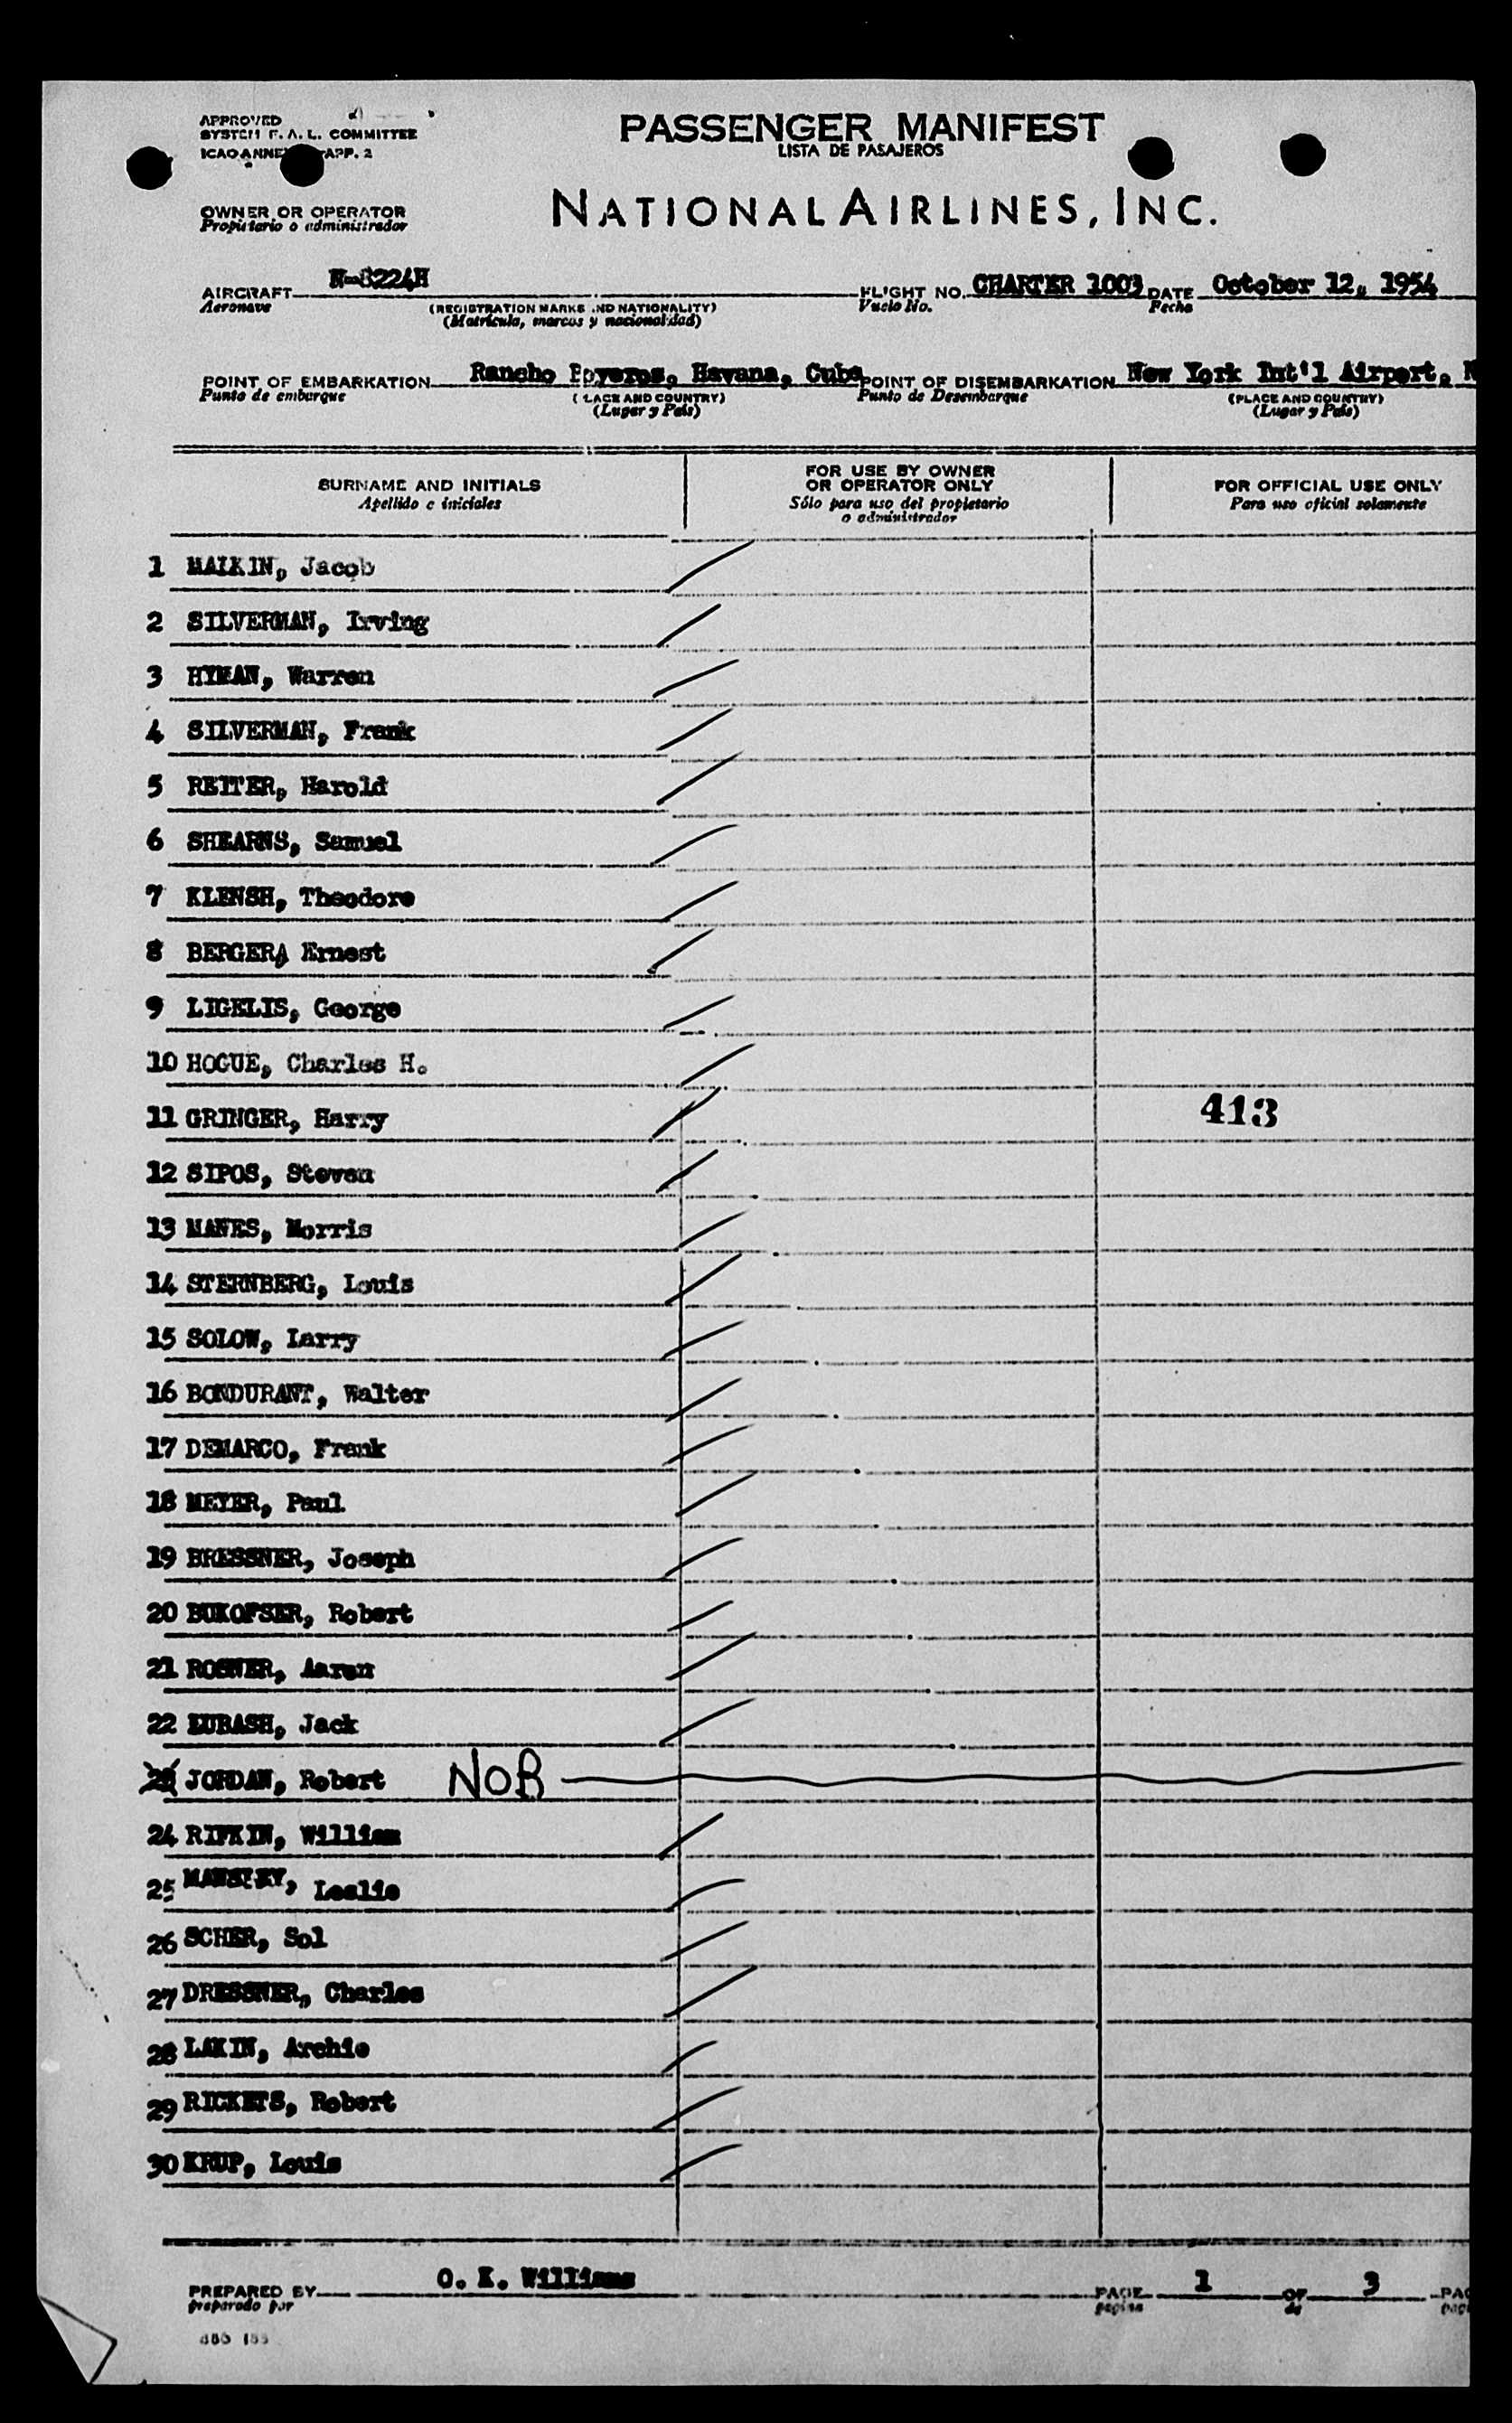 APPROVED
SYSTEM F. A. L. COMMITTEE
ICAO ANNEX APP. 2
PASSENGER MANIFEST
LISTA DE PASAJEROS
OWNER OR OPERATOR
Propietario o administrador
NATIONAL AIRLINES, INC.
AIRCRAFT N-8224H FLIGHT NO. CHARTER 1003 DATE October 12, 1954
Aeronave (REGISTRATION MARKS AND NATIONALITY) Vuelo No. Fecha
(Matrícula, marcas y nacionalidad)
POINT OF EMBARKATION Rancho Boyeros, Havana, Cuba POINT OF DISEMBARKATION New York Int'l Airport, N
Punto de embarque (PLACE AND COUNTRY) Punto de Desembarque (PLACE AND COUNTRY)
(Lugar y País) (Lugar y País)
SURNAME AND INITIALS
Apellido e iniciales
FOR USE BY OWNER
OR OPERATOR ONLY
Sólo para uso del propietario
o administrador
FOR OFFICIAL USE ONLY
Para uso oficial solamente
1 MALKIN, Jacob
2 SILVERMAN, Irving
3 HYMAN, Warren
4 SILVERMAN, Frank
5 REITER, Harold
6 SHEARNS, Samuel
7 KLENSH, Theodore
8 BERGER, Ernest
9 LIGELIS, George
10 HOGUE, Charles H.
11 GRINGER, Harry 413
12 SIPOS, Steven
13 MANES, Morris
14 STERNBERG, Louis
15 SOLOW, Larry
16 BONDURANT, Walter
17 DEMARCO, Frank
18 MEYER, Paul
19 BRESSNER, Joseph
20 BUKOFSER, Robert
21 ROSNER, Aaron
22 LUBASH, Jack
23 JORDAN, Robert NOB
24 RIFKIN, William
25 MANSLEY, Leslie
26 SCHER, Sol
27 DRESSNER, Charles
28 LAKIN, Archie
29 RICKETS, Robert
30 KRUP, Louis
PREPARED BY O. K. Williams PAGE 1 OF 3 PAG
preparado por página de